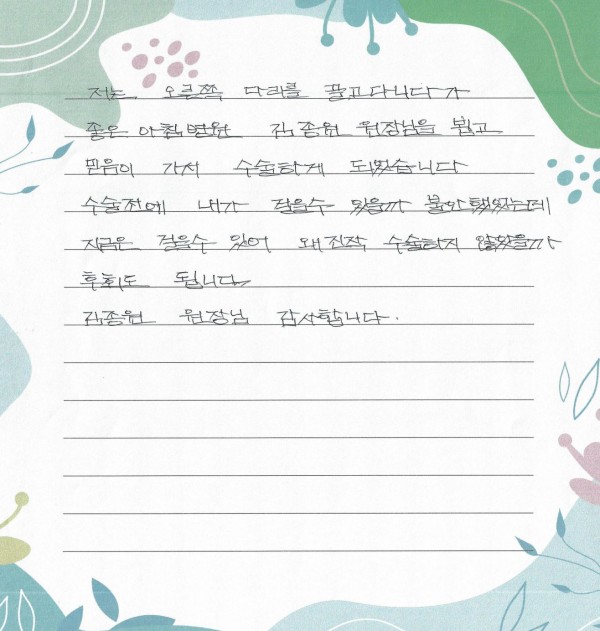 저는 오른쪽 다리를 끌고다니다가
좋은아침병원 김종원 원장님을 뵙고
믿음이 가서 수술하게 되었습니다
수술전에 내가 걸을수 있을까 불안했었는데
지금은 걸을수 있어 왜진작 수술하지 않았을까
후회도 됩니다
김종원 원장님 감사합니다.